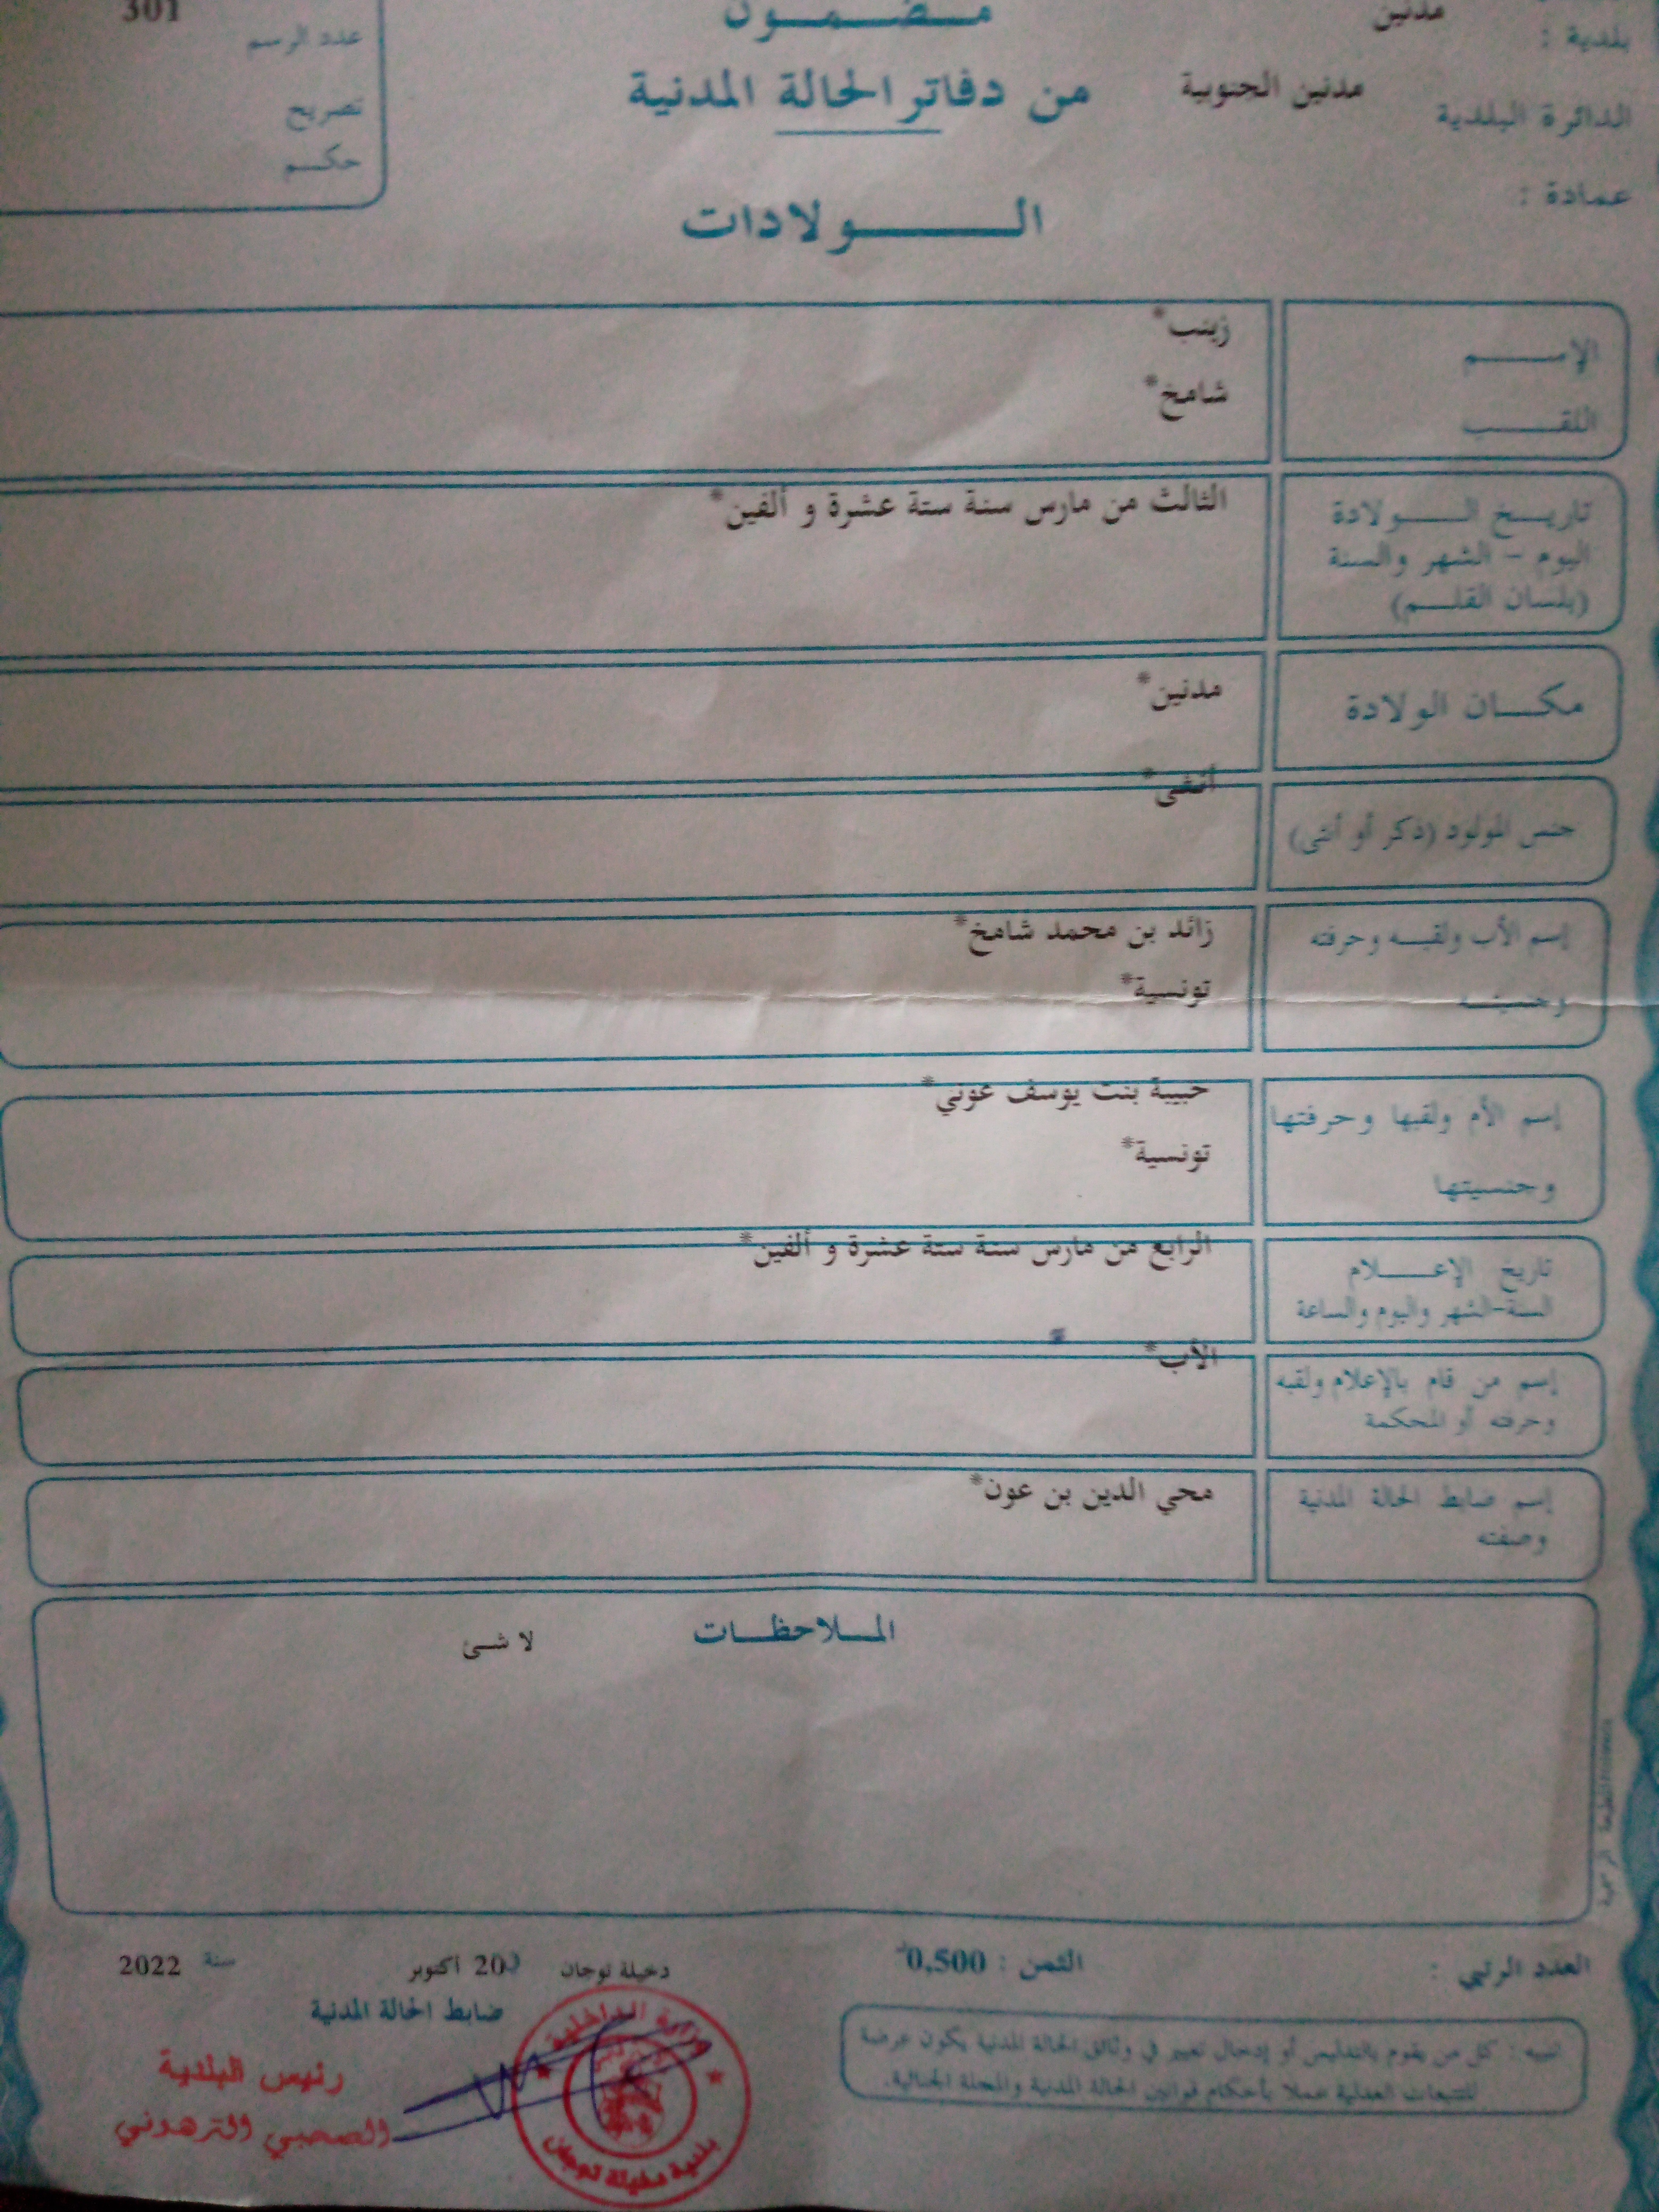 مضمون
من دفاتر الحالة المدنية
الولادات
301
عدد الرسم
تصريح
حكم
مدنين
بلدية :
مدنين الجنوبية
الدائرة البلدية
عمادة :
الإسم
زينب*
اللقب
شامخ*
تاريخ الولادة
الثالث من مارس سنة ستة عشرة و ألفين*
اليوم - الشهر والسنة
(بلسان القلم)
مكان الولادة
مدنين*
جنس المولود (ذكر أو أنثى)
أنثى*
إسم الأب ولقبه وحرفته
زائد بن محمد شامخ*
وجنسيته
تونسية*
إسم الأم ولقبها وحرفتها
حبيبة بنت يوسف عوني*
وجنسيتها
تونسية*
تاريخ الإعلام
الرابع من مارس سنة ستة عشرة و ألفين*
السنة-الشهر واليوم والساعة
إسم من قام بالإعلام ولقبه
الأب*
وحرفته أو المحكمة
إسم ضابط الحالة المدنية
محي الدين بن عون*
وصفته
الملاحظات
لا شئ
العدد الرتبي :
الثمن : 0,500
دخيلة توجان
20 أكتوبر
سنة 2022
ضابط الحالة المدنية
رئيس البلدية
الصحبي الترهوني
وزارة الداخلية
بلدية دخيلة توجان
تنبيه : كل من يقوم بالتدليس أو إدخال تغيير في وثائق الحالة المدنية يكون عرضة
للتتبعات العدلية عملا بأحكام قوانين الحالة المدنية والمجلة الجنائية.
المطبعة الرسمية